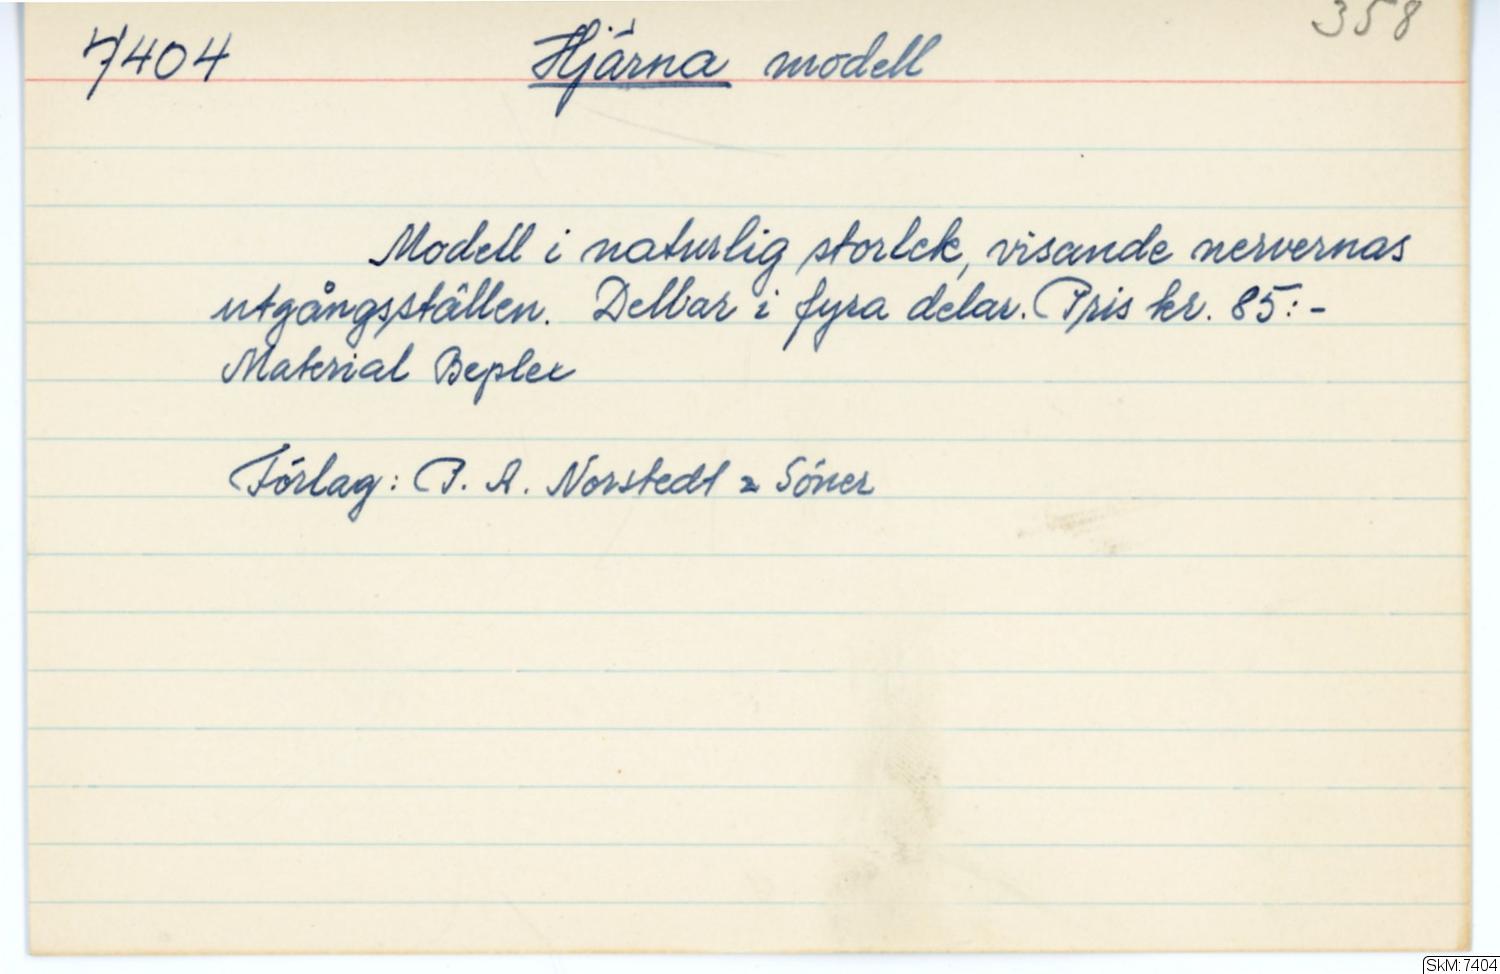 358
7404 Hjärna modell
Modell i naturlig storlek, visande nervernas
utgångsställen. Delbar i fyra delar. Pris kr. 85:-
Material Beplex
Förlag: P. A. Norstedt & Söner
SkM:7404